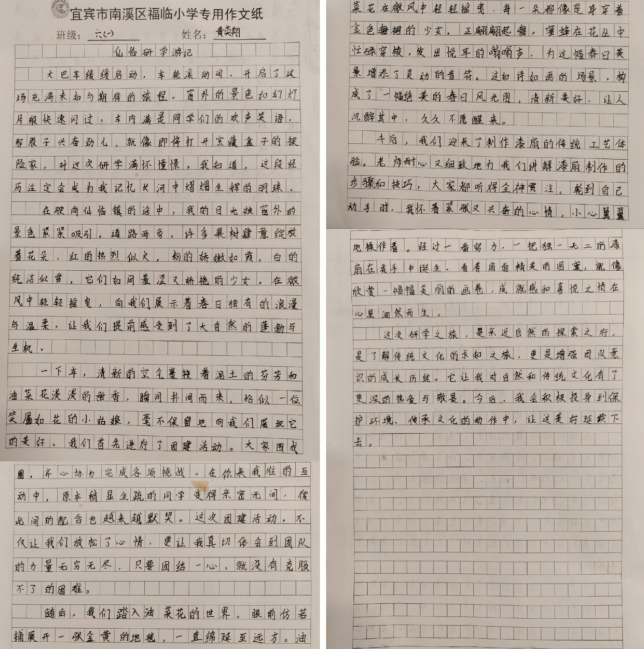 宜宾市南溪区福临小学专用作文纸
班级：六(一) 姓名：黄奕翔
仙临研学游记
大巴车缓缓启动，车轮滚动间，开启了这
场充满未知与期待的旅程。窗外的景色如幻灯
片般快速闪过，车内满是同学们的欢声笑语，
都展子兴奋劲儿，就像即将打开宝藏盒子的探
险家，对这次研学满怀憧憬，我知道，这段经
历注定会成为我记忆长河中熠熠生辉的明珠。
在驶向仙临镇的途中，我的目光被窗外的
景色紧紧吸引，道路两旁，许多果树肆意绽放
着花朵，红的热烈似火，粉的娇嫩如霞，白的
纯洁似雪，它们如同羞涩又娇艳的少女，在微
风中轻轻摇曳，向我们展示着春日独有的浪漫
与温柔，让我们提前感受到了大自然的蓬勃与
生机。
一下车，清新的空气裹挟着泥土的芬芳和
油菜花淡淡的幽香，瞬间扑面而来。恰似一位
笑靥如花的小姑娘，毫不保留地向我们展现它
的美好。我们首先进行了团建活动。大家围成
圈，齐心协力完成各项挑战。在你来我往的互
动中，原本稍显生疏的同学变得亲密无间，彼
此间的配合也越来越默契。这次团建活动，不
仅让我们放松了心情，更让我真切体会到团队
的力量无穷无尽，只要团结一心，就没有克服
不了的困难。
随后，我们踏入油菜花的世界。眼前仿若
铺展开一张金黄的地毯，一直绵延至远方。油
菜花在微风中轻轻摇曳，每一朵都像是身穿着
金色舞裙的少女，正翩翩起舞。蜜蜂在花丛中
忙碌穿梭，发出悦耳的嗡嗡声，为这幅春日美
景增添了灵动的音符。这如诗如画的场景，构
成了一幅绝美的春日风光图，清新美好，让人
沉醉其中，久久不愿醒来。
午后，我们迎来了制作漆扇的传统工艺体
验。老师耐心又细致地为我们讲解漆扇制作的
步骤和技巧，大家都听得全神贯注。轮到自己
动手时，我怀着紧张又兴奋的心情，小心翼翼
地操作着。经过一番努力，一把独一无二的漆
扇在我手中诞生。看着扇面精美的图案，就像
欣赏一幅幅美丽的画卷，成就感和喜悦之情在
心里油然而生。
这次研学之旅，是亲近自然的探索之行，
是了解传统文化的求知之旅，更是增强团队意
识的成长历程。它让我对自然和传统文化有了
更深的热爱与敬畏。今后，我会积极投身到保
护环境、传承文化的动作中，让这美好延续下
去。